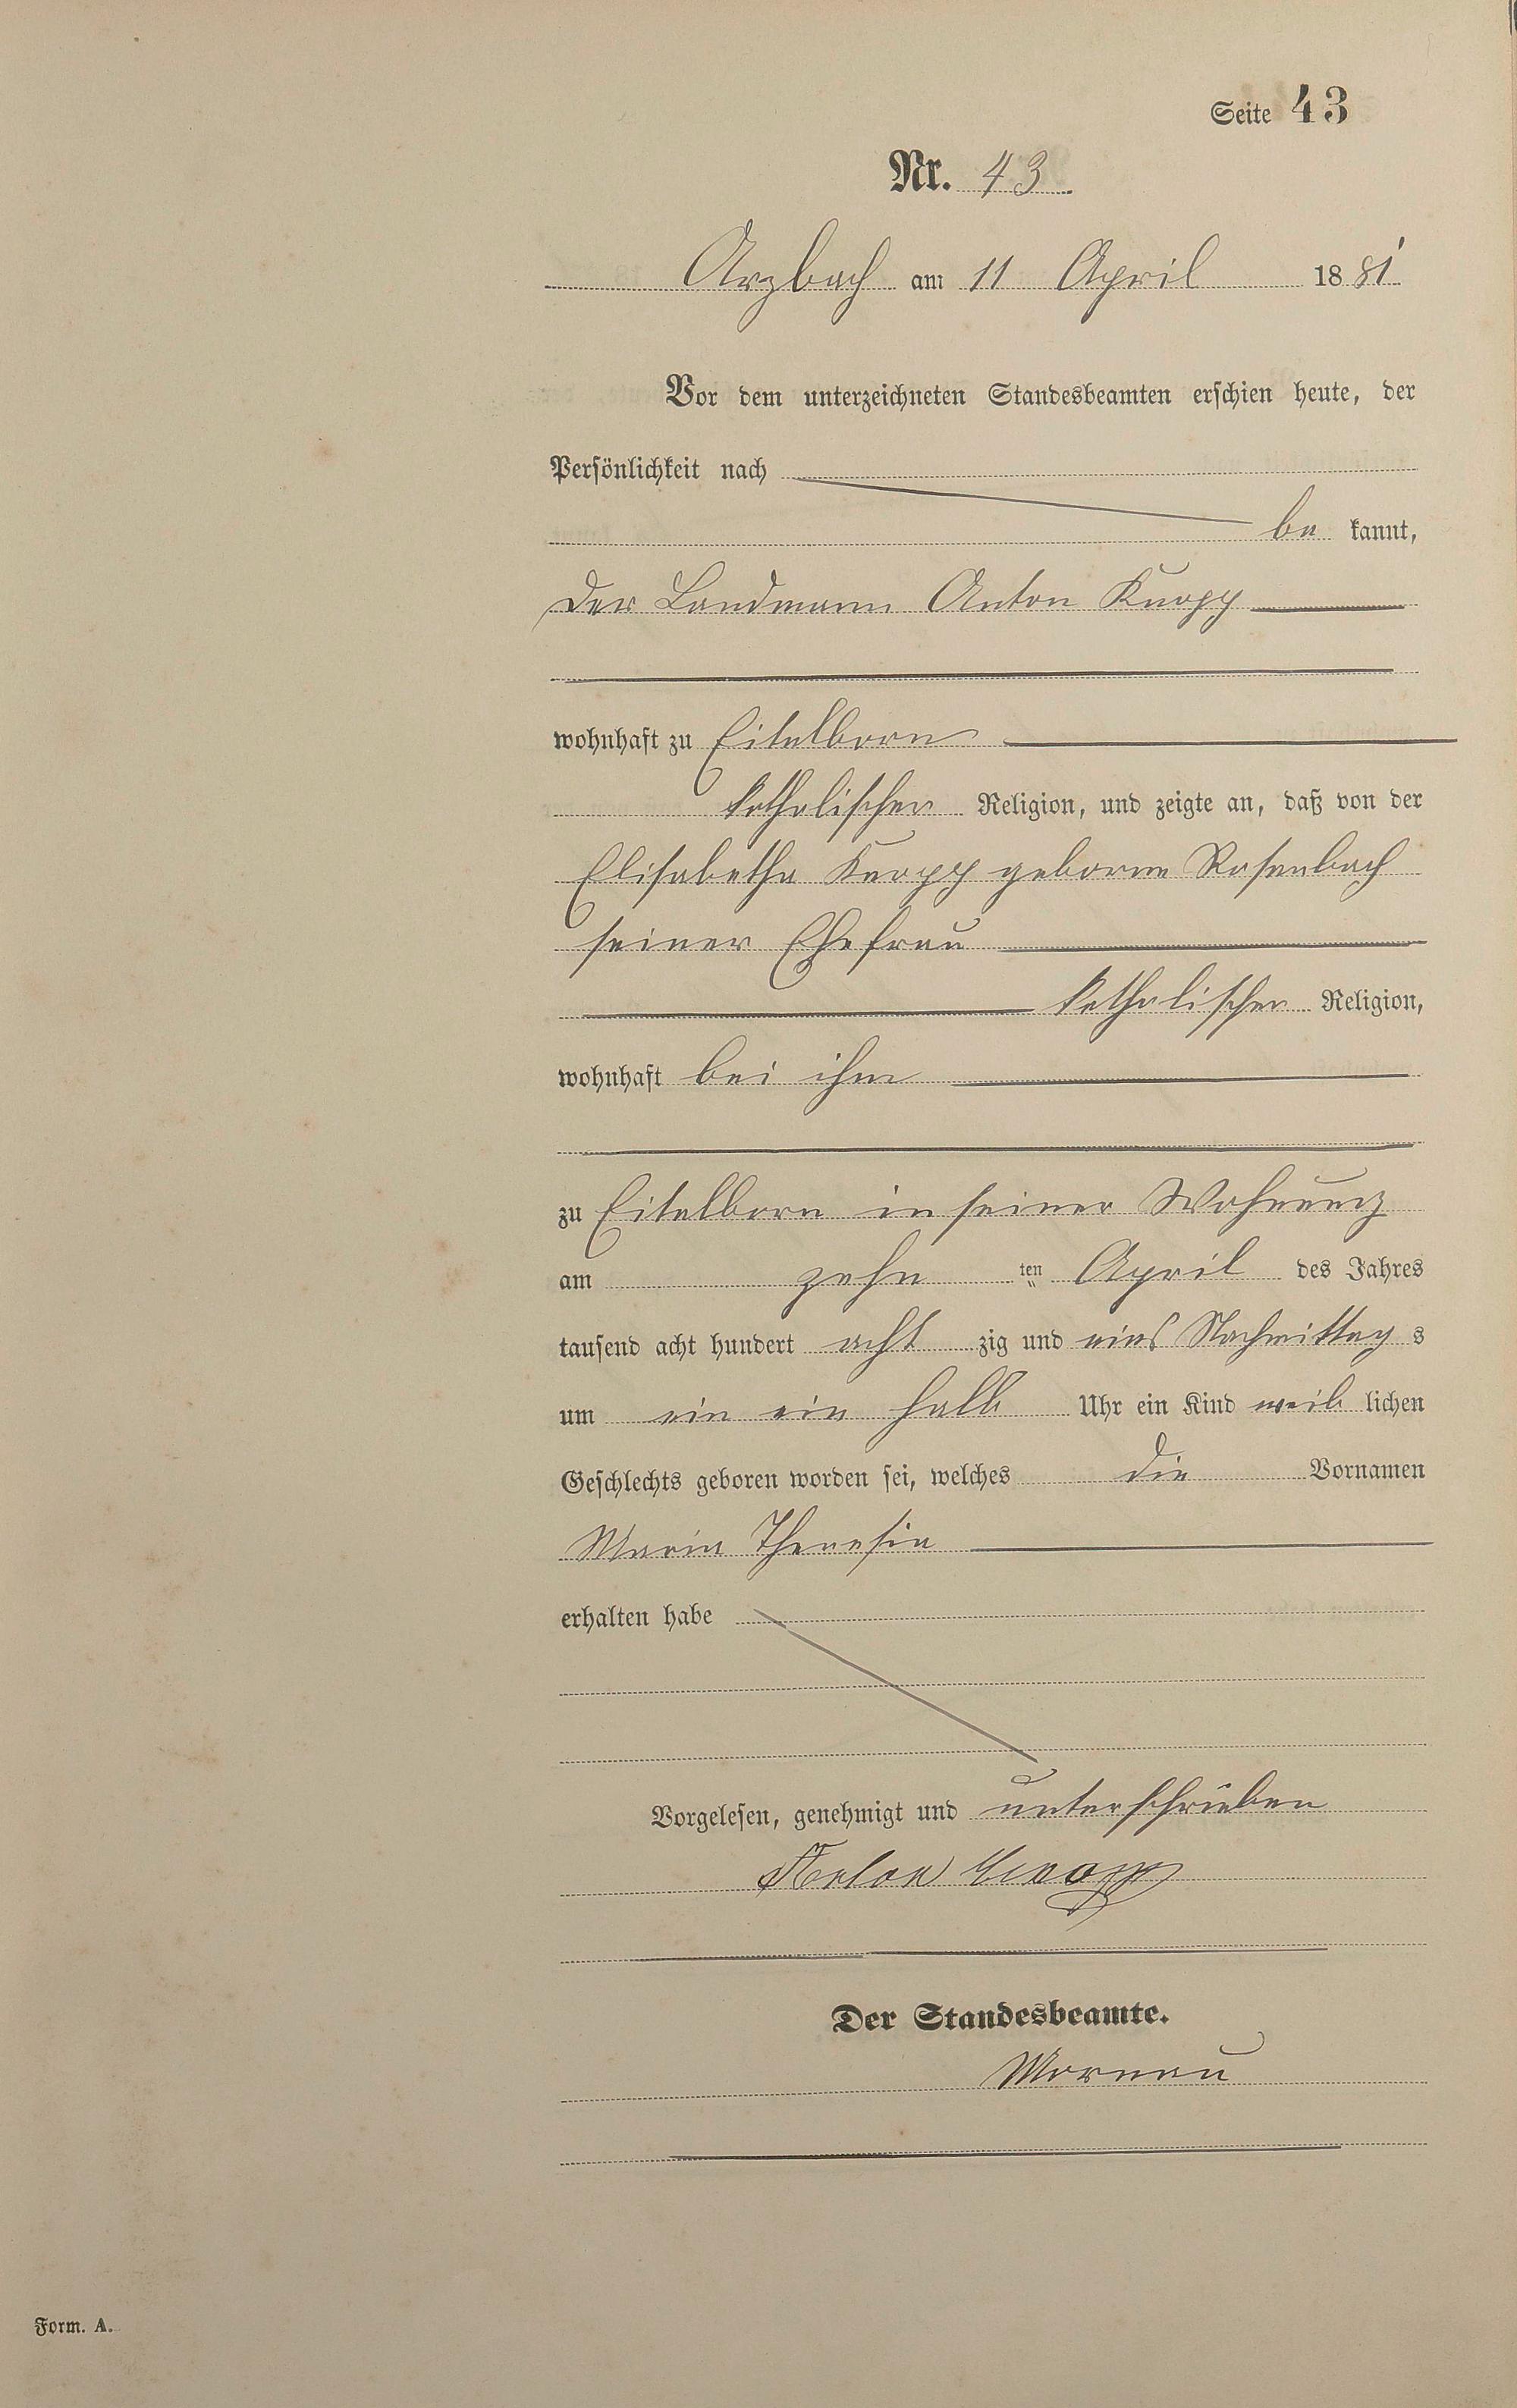 Seite 43
Nr. 43
Arzbach am 11 April 1881
Vor dem unterzeichneten Standesbeamten erschien heute, der
Persönlichkeit nach
be kannt,
der Landmann Anton Knopp
wohnhaft zu Eitelborn
katholischer Religion, und zeigte an, daß von der
Elisabetha Knopp geborne Rosenbach
seiner Ehefrau
katholischer Religion,
wohnhaft bei ihm
zu Eitelborn in seiner Wohnung
am zehn ten April des Jahres
tausend acht hundert acht zig und eins Nachmittag s
um ein ein halb Uhr ein Kind weib lichen
Geschlechts geboren worden sei, welches die Vornamen
Maria Theresia
erhalten habe
Vorgelesen, genehmigt und unterschrieben
Anton Knopp
Der Standesbeamte.
Mornau
Form. A.